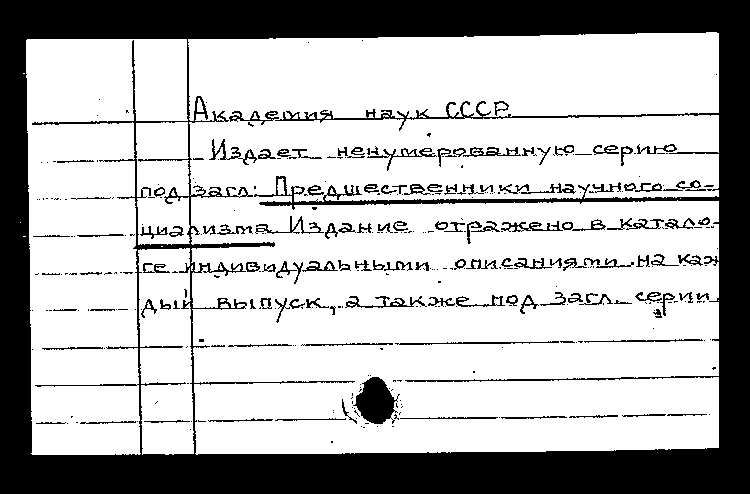 Академия наук СССР.
Издает ненумерованную серию
под загл.: Предшественники научного со-
циализма. Издание отражено в катало-
ге индивидуальными описаниями на каж
дый выпуск, а также под загл. серии.